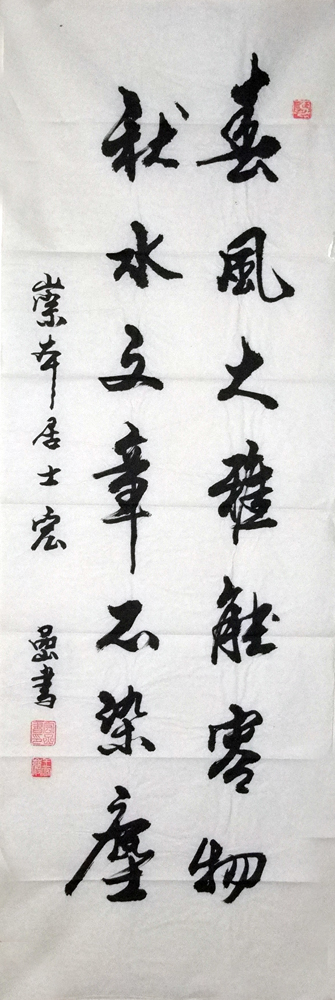 春風大雅能容物
秋水文章不染塵
崇本居士宏書